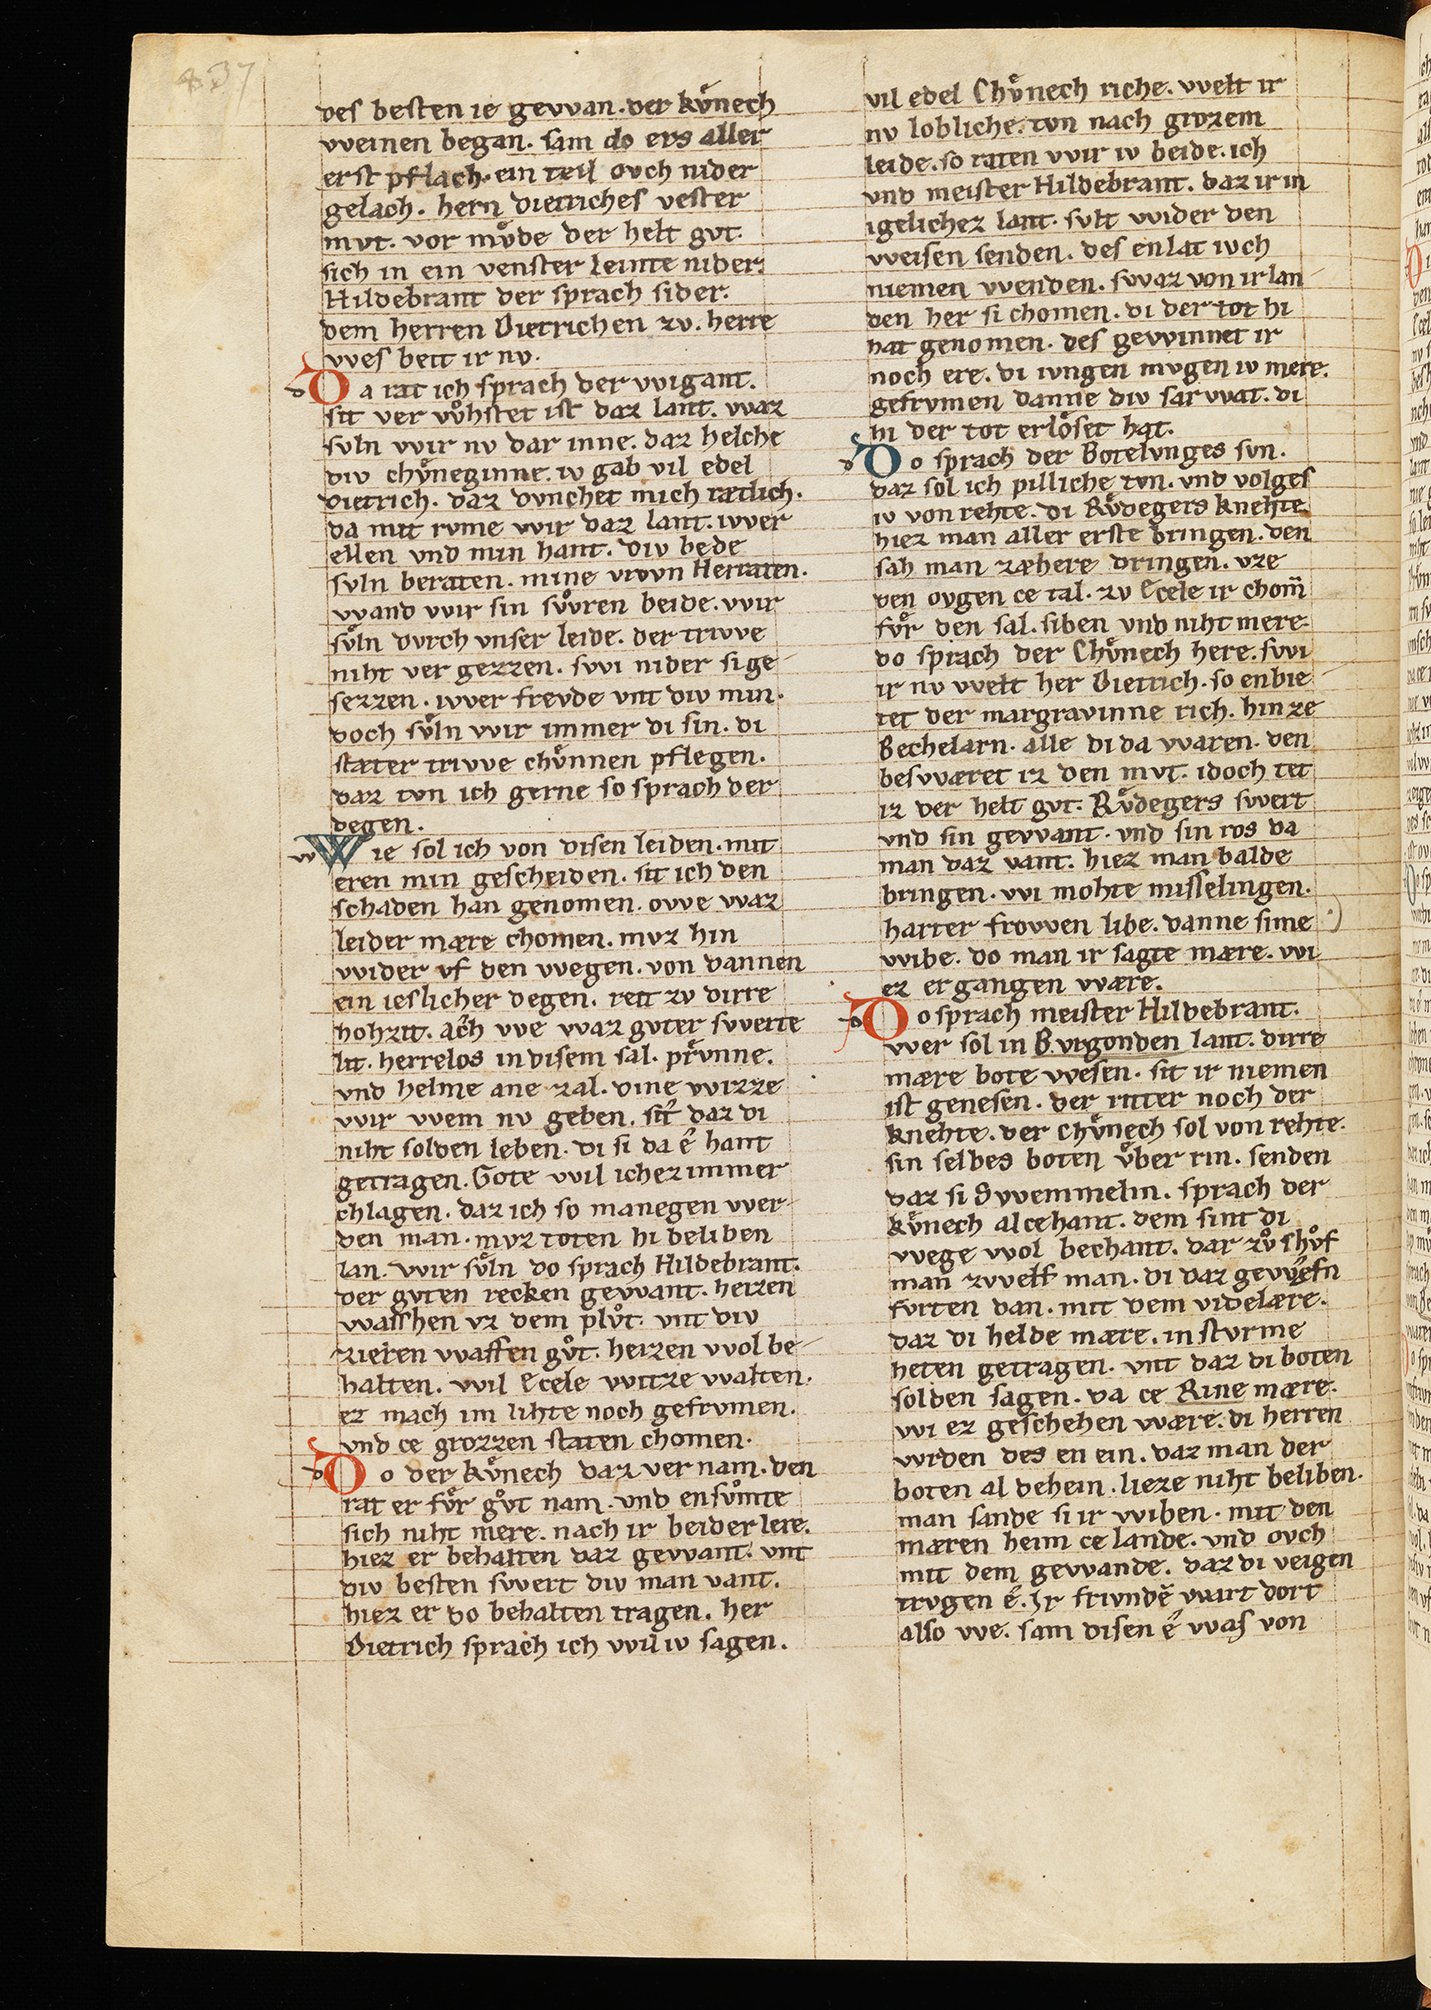 437
des besten ie gewan. der kv̍nech
weinen began. sam do ers aller
erst pflach. ein teil ovch nider
gelach. hern dietriches vester
mvt. vor mv̊de der helt gvt.
sich in ein venster leinte nider.
Hildebrant der sprach sider.
dem herren Dietrichen zv. herre
wes beit ir nv.
Da rat ich sprach der wigant.
sit ver wv̊hstet ist daz lant. waz
svln wir nv dar inne. daz helche
div chv̍neginne. iv gab vil edel
dietrich. daz dvnchet mich rætlich.
da mit rvme wir daz lant. iwer
ellen vnd min hant. div bede
svln beraten. mine vrovn Herraten.
wand wir sin sv̊ren beide. wir
sv̊ln dvrch vnser leide. der triwe
niht ver gezzen. swi nider si ge
sezzen. iwer frevde vnt div min.
doch sv̊ln wir immer di sin. di
stæter triwe chv̊nnen pflegen.
daz tvn ich gerne so sprach der
degen.
Wie sol ich von disen leiden. mit
eren min gescheiden. sit ich den
schaden han genomen. owe waz
leider mære chomen. mvz hin
wider vf den wegen. von dannen
ein ieslicher degen. reit zv dirre
hohzit. ach we waz gvter swerte
lit. herrelos in disem sal. prv̊nne.
vnd helme ane zal. dine wizze
wir wem nv geben. sit daz di
niht solden leben. di si da ê hant
getragen. Gote wil ichez immer
chlagen. daz ich so manegen wer
den man. mvz toten hi beliben
lan. wir sv̊ln do sprach Hildebrant.
der gvten recken gewant. heizen
wasshen vz dem plv̊t. vnt div
zieren waffen gv̊t. heizen wol be
halten. wil Ecele witze walten.
ez mach im lihte noch gefrvmen.
vnd ce grozzen staten chomen.
Do der kv̍nech daz ver nam. den
rat er fv̊r gv̊t nam. vnd ensv̊mte
sich niht mere. nach ir beider lere.
hiez er behalten daz gewant. vnt
div besten swert div man vant.
hiez er do behalten tragen. her
Dietrich sprach ich wil iv sagen.
vil edel Chv̍nech riche. welt ir
nv lobliche. tvn nach grozem
leide. so raten wir iv beide. ich
vnd meister Hildebrant. daz ir in
igelichez lant. svlt wider den
weisen senden. des enlat ivch
niemen wenden. swaz von ir lan
den her si chomen. di der tot hi
hat genomen. des gewinnet ir
noch ere. di ivngen mvgen iv mere.
gefrvmen danne div sarwat. di
hi der tot erlöset hat.
Do sprach der Botelvnges svn.
daz sol ich pilliche tvn. vnd volges
iv von rehte. di Rv̊degers knehte.
hiez man aller erste bringen. den
sah man zæhere dringen. vze
den ovgen ce tal. zv Ecele ir chom̅
fv̊r den sal. siben vnd niht mere.
do sprach der Chv̍nech here. swi
ir nv welt her Dietrich. so enbie
tet der margravinne rich. hin ze
Bechelarn. alle di da waren. den
beswæret iz den mvt. idoch tet
iz der helt gvt. Rv̊degers swert
vnd sin gewant. vnd sin ros da
man daz vant. hiez man balde
bringen. wi mohte misselingen.
harter frowen libe. danne sime
wibe. do man ir sagte mære. wi
ez ergangen wære.
Do sprach meister Hildebrant.
wer sol in Bvrgonden lant. dirre
mære bote wesen. sit ir niemen
ist genesen. der ritter noch der
knehte. der chv̍nech sol von rehte.
sin selbes boten v̊ber rin. senden
daz si Swemmelin. sprach der
kv̍nech alcehant. dem sint di
wege wol bechant. dar zv̊ shv̊f
man zwelf man. di daz gewæfn
fvrten dan. mit dem videlære.
daz di helde mære. in stvrme
heten getragen. vnt daz di boten
solden sagen. da ce Rine mære.
wi ez geschehen wære. di herren
wrden des en ein. daz man der
boten al dehein. lieze niht beliben.
man sande si ir wiben. mit den
mæren heim ce lande. vnd ovch
mit dem gewande. daz di veigen
trvgen ê. Ir frivndē wart dort
also we. sam disen ê was von